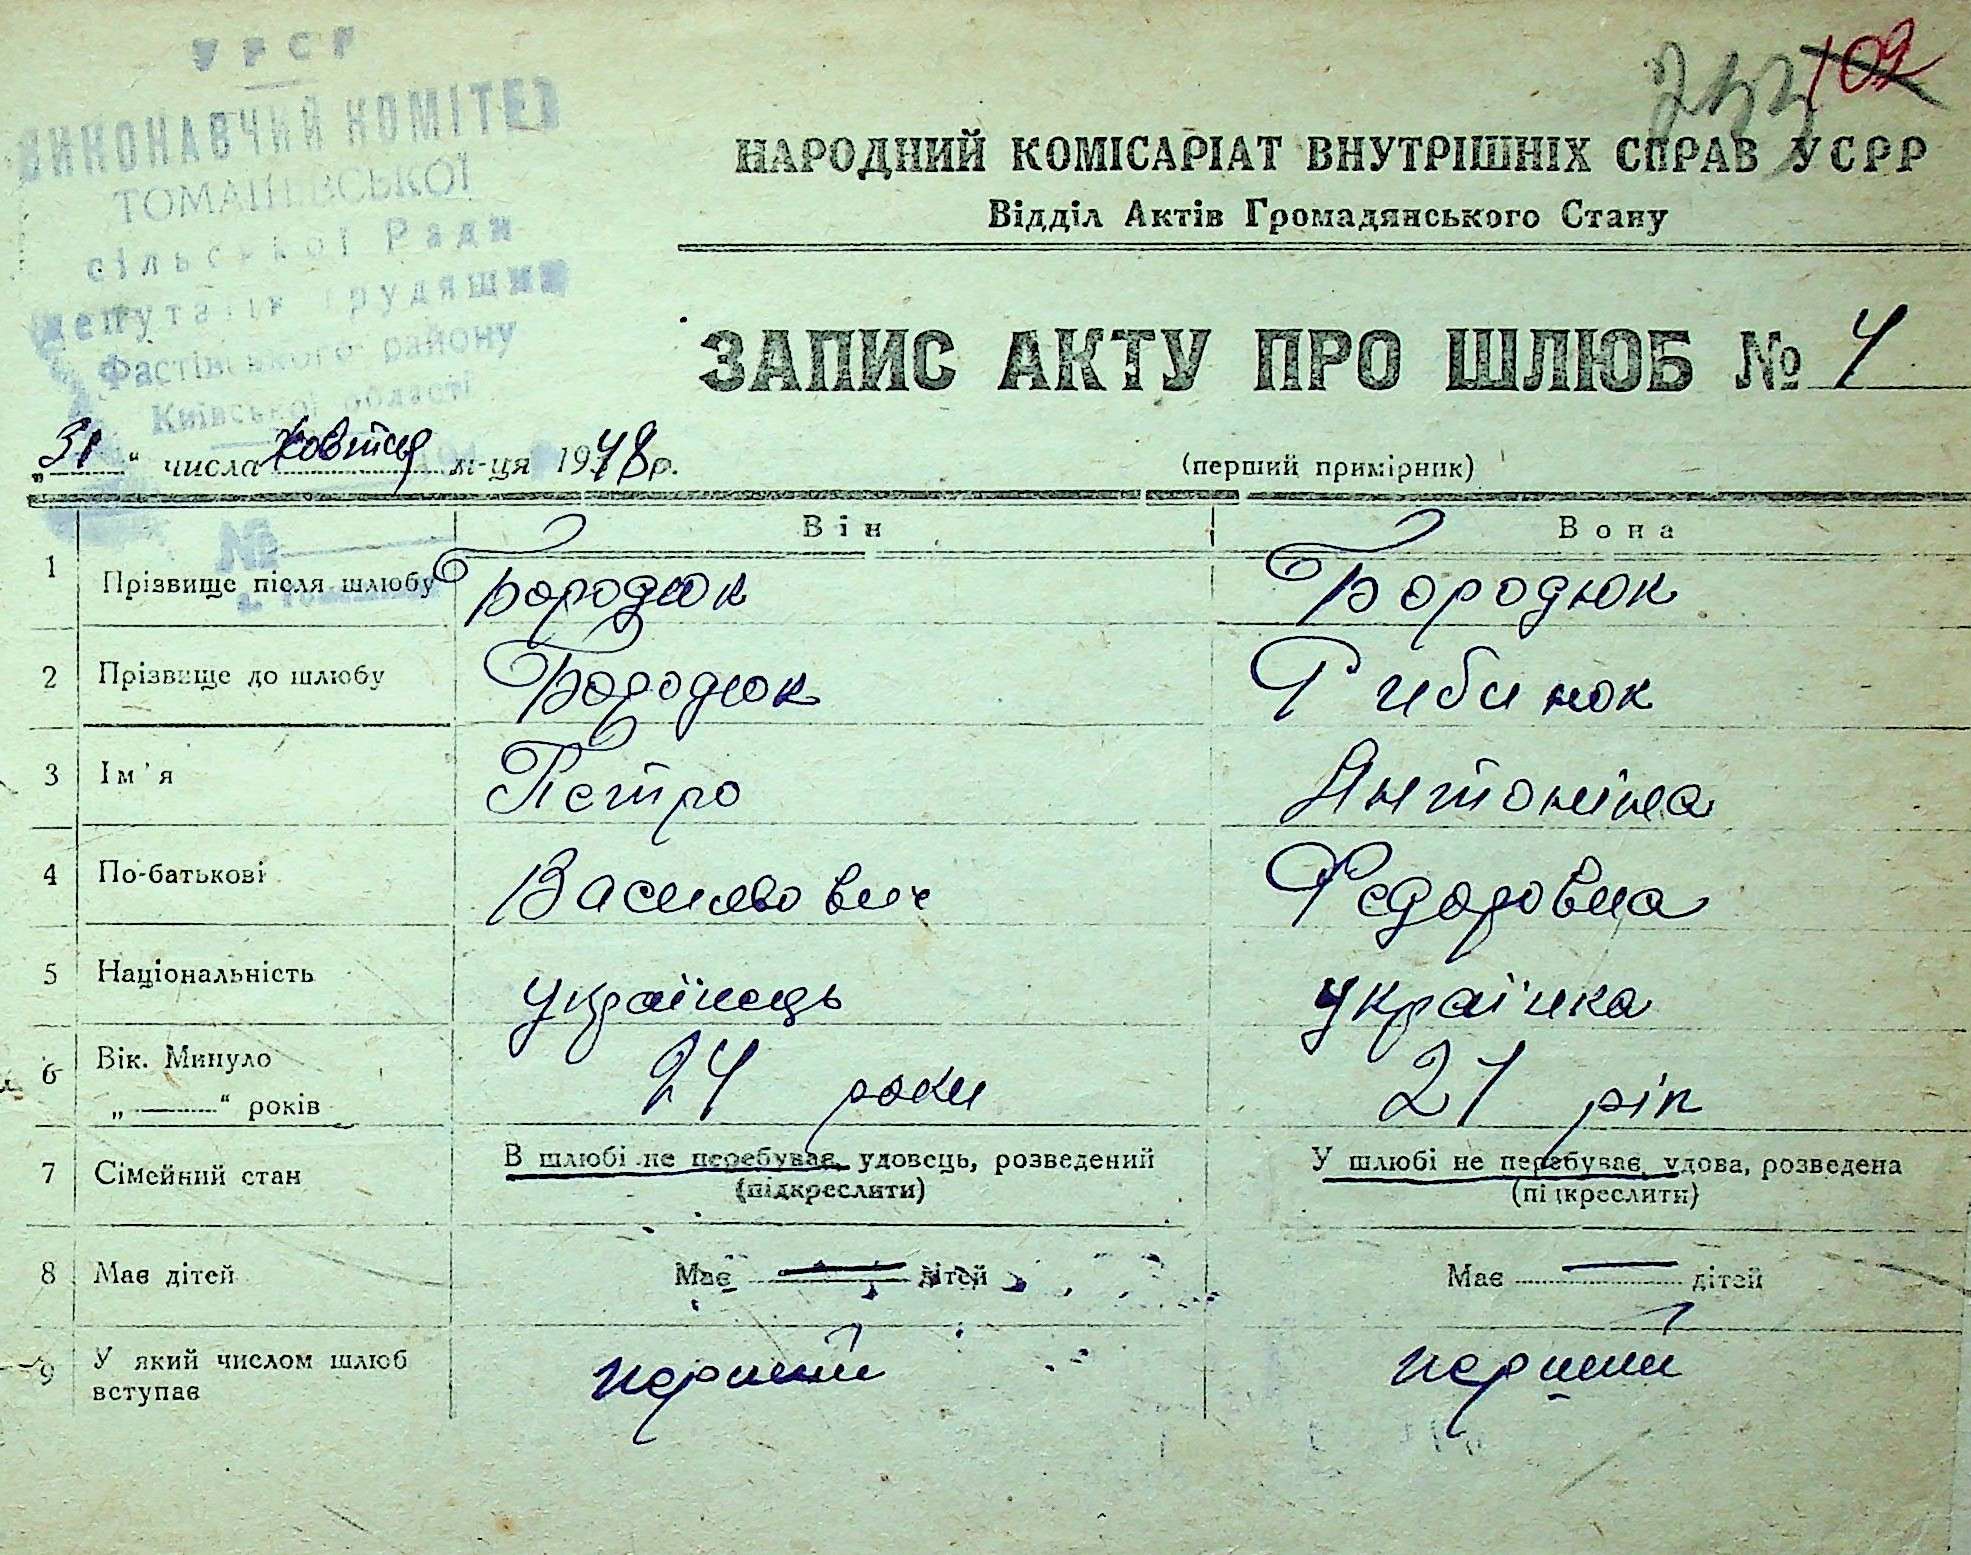 УРСР
ВИКОНАВЧИЙ КОМІТЕТ
ТОМАШЕВСЬКОЇ
сільської Ради
депутатів трудящих
Фастівського району
Київської області
№
109
НАРОДНИЙ КОМІСАРІАТ ВНУТРІШНІХ СПРАВ УСРР
Відділ Актів Громадянського Стану
ЗАПИС АКТУ ПРО ШЛЮБ № 4
„31“ числа жовтня м-ця 1948 р.
(перший примірник)
Він Вона
1 Прізвище після шлюбу Бородюк Бородюк
2 Прізвище до шлюбу Бородюк Рибинок
3 Ім'я Петро Антоніна
4 По-батькові Васильович Федоровна
5 Національність українець українка
6 Вік. Минуло 24 роки 21 рік
„ “ років
7 Сімейний стан В шлюбі не перебуває, удовець, розведений У шлюбі не перебуває, удова, розведена
(підкреслити) (підкреслити)
8 Має дітей Має — дітей Має — дітей
9 У який числом шлюб перший перший
вступає